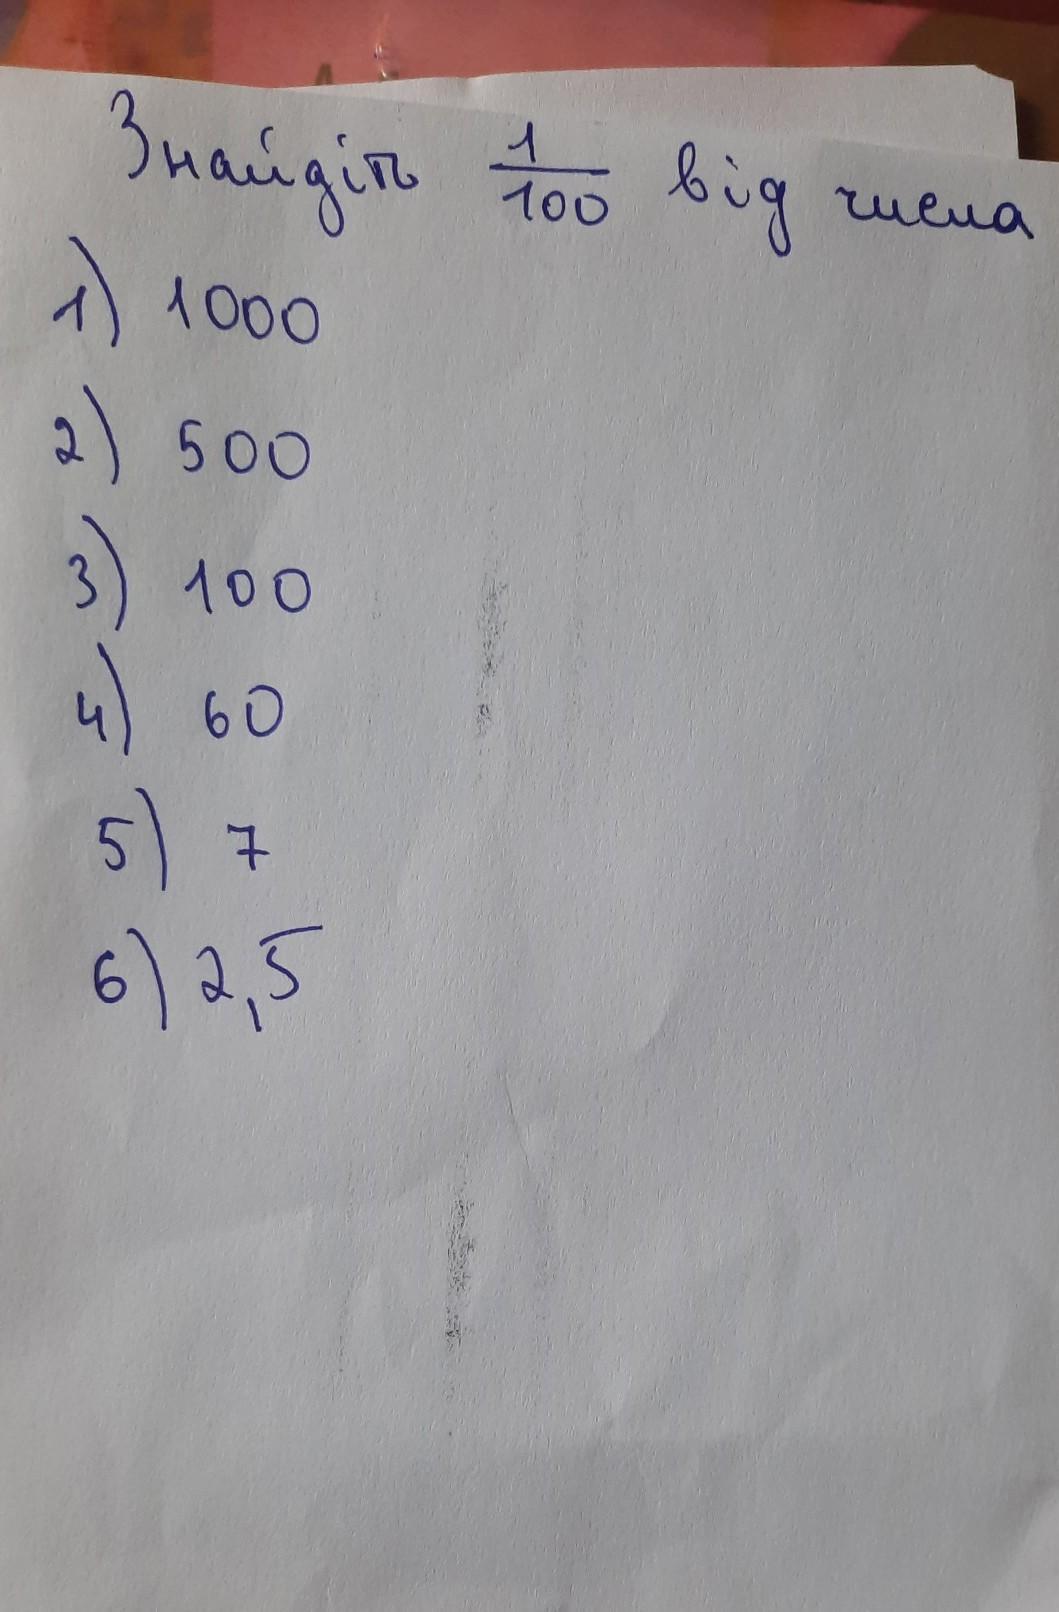 Знайдіть 1/100 від числа
1) 1000
2) 500
3) 100
4) 60
5) 7
6) 2,5